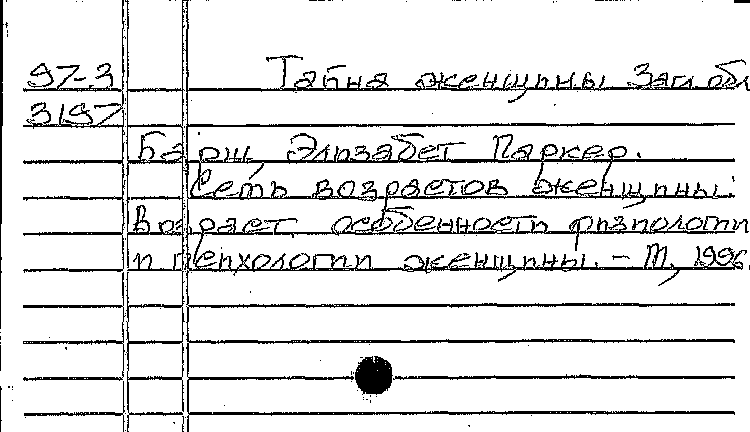 97-3 Тайна женщины Загл.обл
3197
Барш, Элизабет Паркер.
Семь возрастов женщины:
Возраст. особенности физиологии
и психологии женщины. - М, 1996.